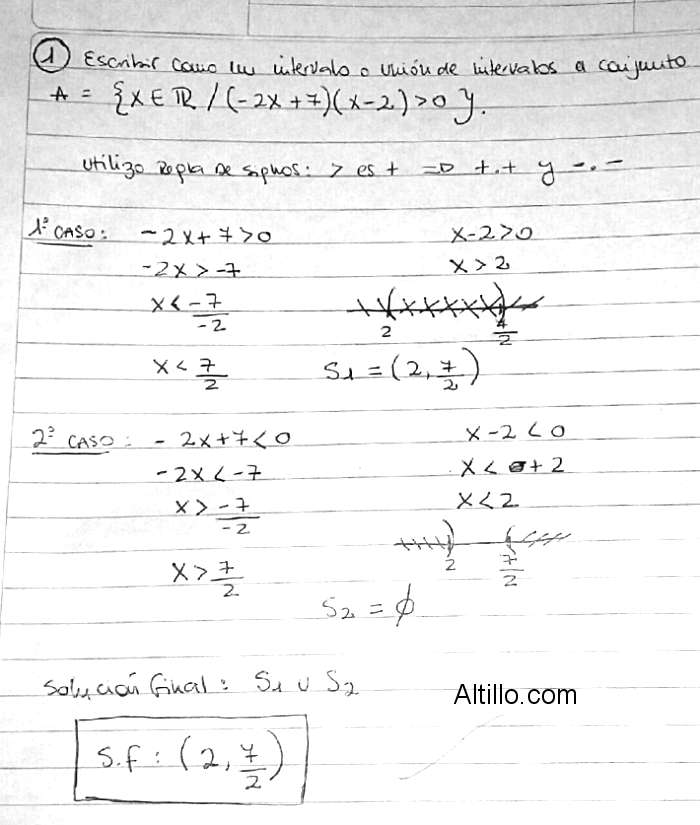 ① Escribir como un intervalo o unión de intervalos a conjunto
A = {x ∈ ℝ / (-2x+7)(x-2)>0 }.
Utilizo Regla de signos: > es + => +.+ y -.-
1º CASO: -2x+7>0 x-2>0
-2x>-7 x>2
x< -7/-2
2 7/2
x< 7/2 S1 = (2, 7/2)
2º CASO: -2x+7<0 x-2<0
-2x<-7 x< 0+2
x> -7/-2 x<2
2 7/2
x> 7/2
S2 = ϕ
Solución final: S1 ∪ S2
Altillo.com
S.f: (2, 7/2)